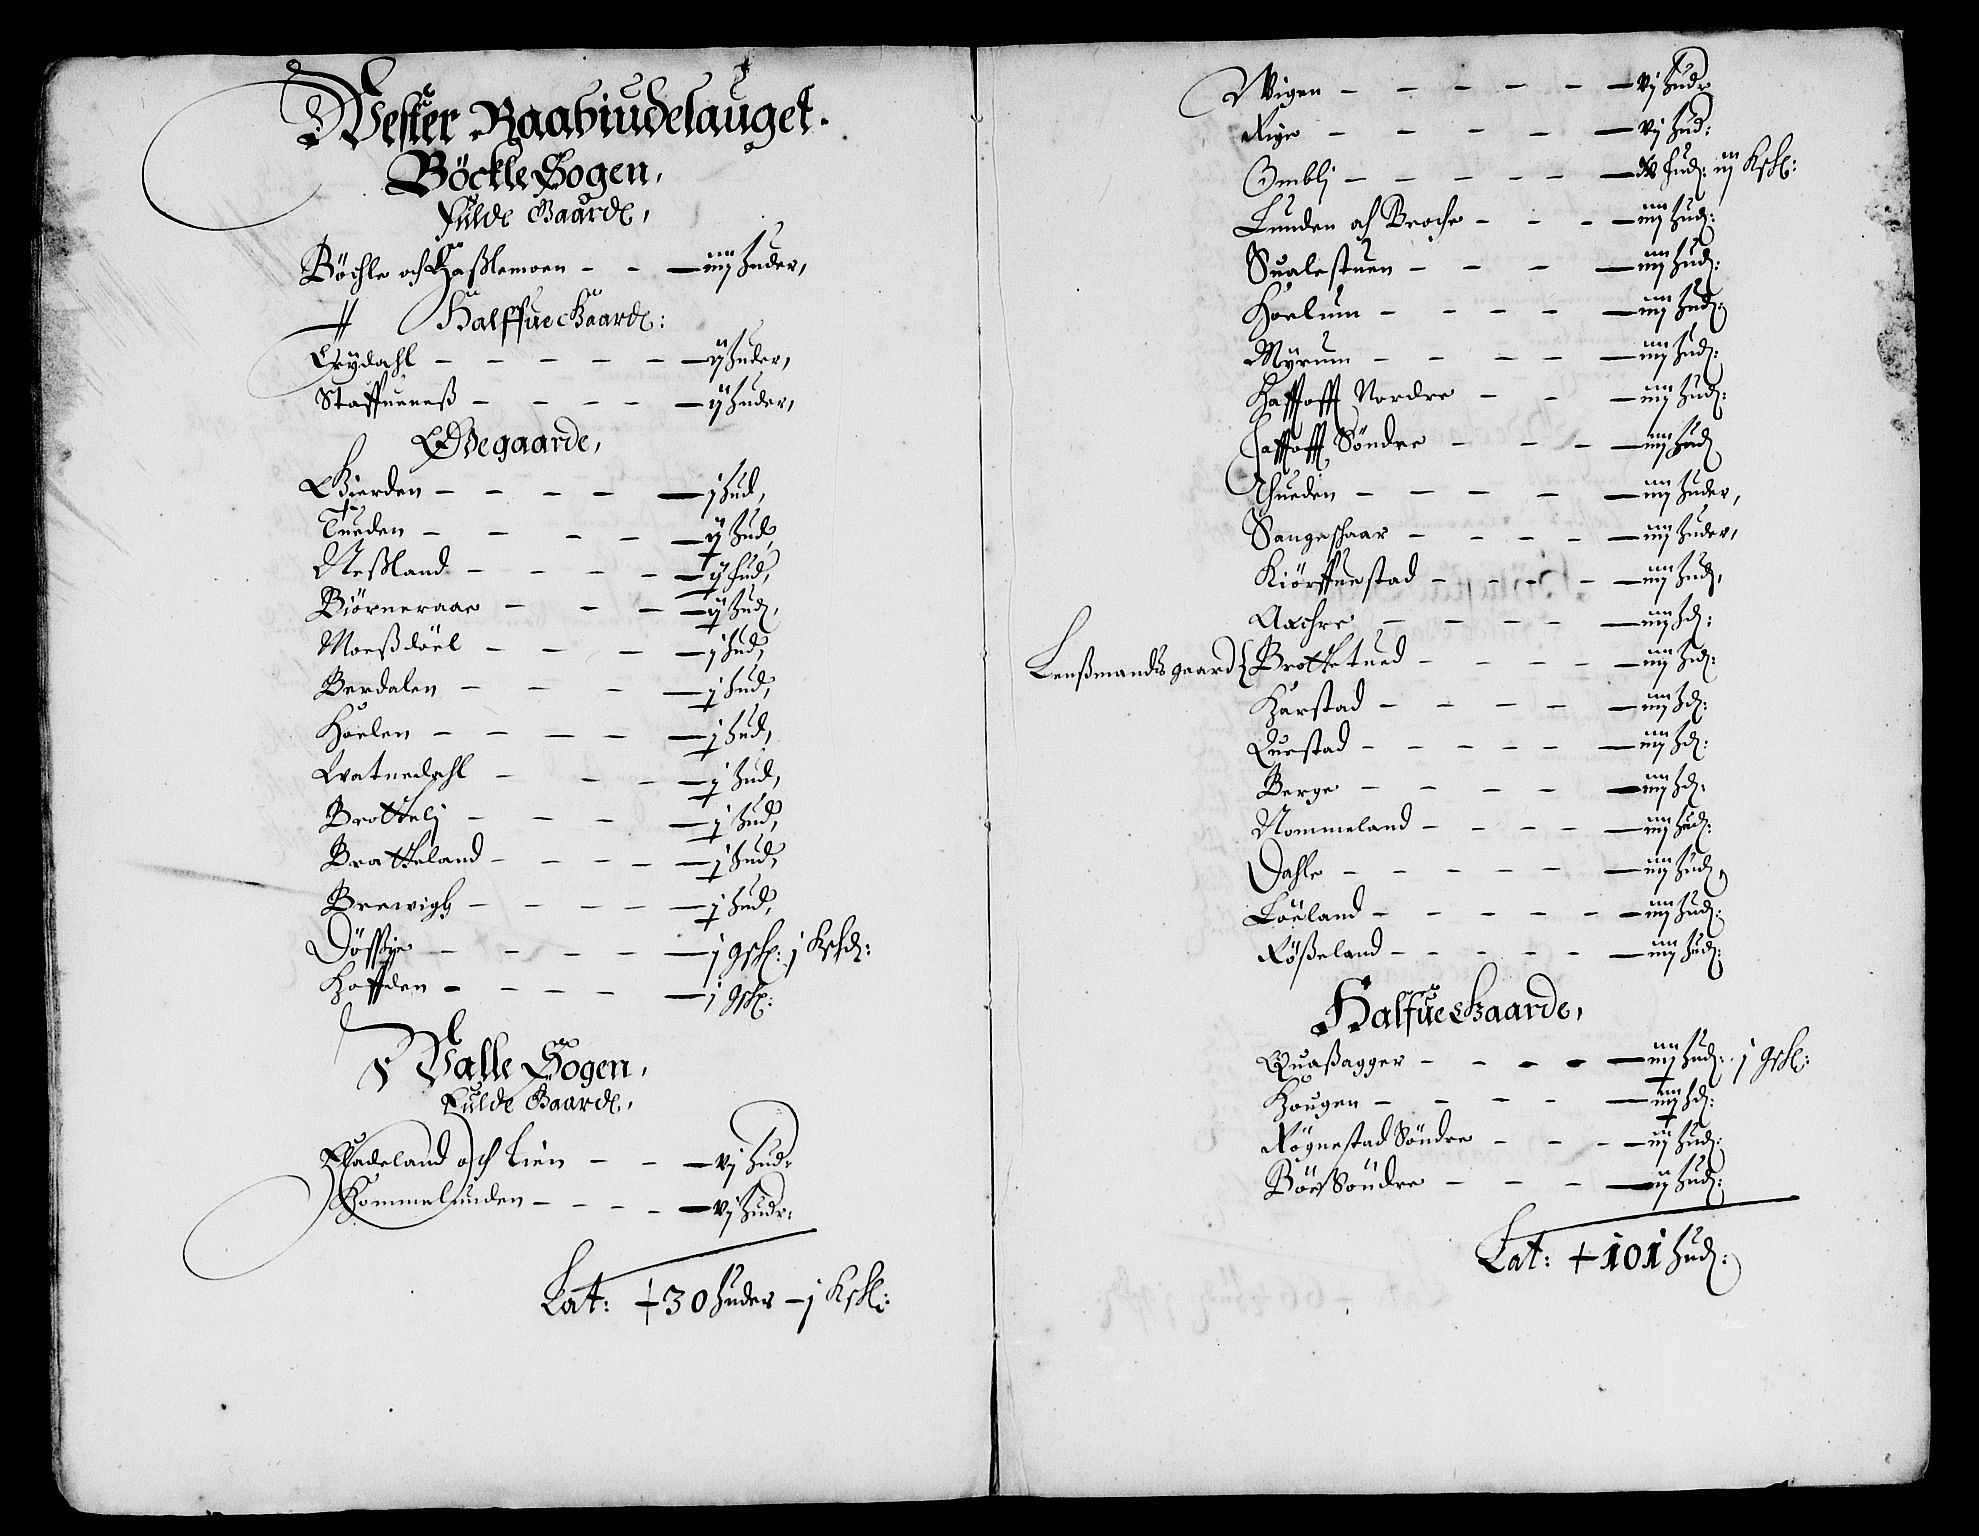 Wester Raabiudelauget.
Böckle Sogen,
Fulde Gaarde,
Böchle och Haßlemoen - - - iiij huder,
Halffue Gaarde:
Trÿdahl - - - - - - ij huder,
Staffueneß - - - - - ij huder,
Ødegaarde,
Gierden - - - - - j hud,
Tueden - - - - - ij hud,
Neßland - - - - - ij hud,
Biörneraae - - - - ij hud,
Moeßdöel - - - - j hud,
Berdalen - - - - j hud,
Hoelen - - - - - j hud,
Watnedahl - - - - j hud,
Brottelj - - - - j hud,
Bratteland - - - - - j hud,
Brewigh - - - - - j hud,
Döffße - - - - - j gsk: j Kskd:
Hoffden - - - - - j gsk:
Valle Sogen,
Fulde Gaarde,
Fladeland och Lien - - - vj hudr
Hommelunden - - - - - vj hudr:
Lat: + 30 huder - j Ksk:
Wigen - - - - - - vj hudr
Rige - - - - - vj hud:
Omblj - - - - - - hud: iij Ksk:
Lunden och Broche - - - - iiij hud:
Sualestuen - - - - iiij hud:
Hoelum - - - - - iiij hud:
Mÿrum - - - - - iiij hud:
Hafftofft Nordre - - - iiij hud:
Hafftofft Söndre - - - - iiij hud
Thueden - - - - - iiij huder,
Sangeschaar - - - - - iiij huder,
Kiörffuestad - - - - - iiij hud,
Aachre - - - - - iiij hd:
Lenßmands gaard { Brottetued - - - - - iiij hd:
Harstad - - - - - iiij hd:
Questad - - - - - iiij hd:
Berge - - - - - iiij hd:
Nommeland - - - - - iiij hud:
Dahle - - - - - - iiij hud,
Löeland - - - - - - iiij hud:
Rößeland - - - - - iiij hud:
Halfue Gaarde,
Quaßagger - - - - - iiij hud: j gsk:
Hougen - - - - - iiij hd:
Rögnestad Söndre - - - - iij hud:
Böe Söndre - - - - iij hud:
Lat: + 101 hud: